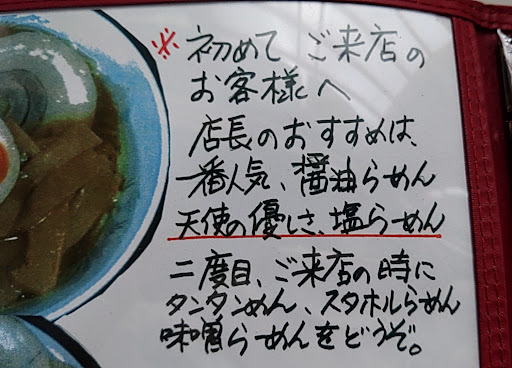 ※初めて ご来店の
お客様へ
店長のおすすめは、
一番人気、醤油らーめん
天使の優しさ、塩らーめん
二度目、ご来店の時に
タンタンめん、スタホルらーめん
味噌らーめんをどうぞ。